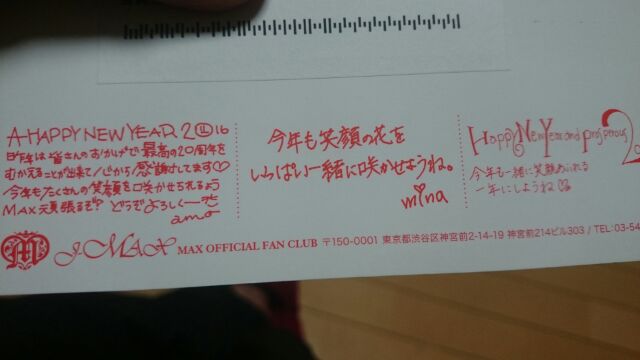 A HAPPY NEW YEAR 2016
昨年は皆さんのおかげで最高の20周年を
むかえることが出来て心から感謝してます♡
今年もたくさんの笑顔を咲かせられるよう
MAX頑張るぞ!? どうぞよろしくーです
amo
今年も笑顔の花を
いっぱい一緒に咲かせようね。
mina
Happy New Year and prosperous 2
今年も一緒に笑顔あふれる
一年にしようね
M J-MAX MAX OFFICIAL FAN CLUB 〒150-0001 東京都渋谷区神宮前2-14-19 神宮前214ビル303 / TEL:03-54